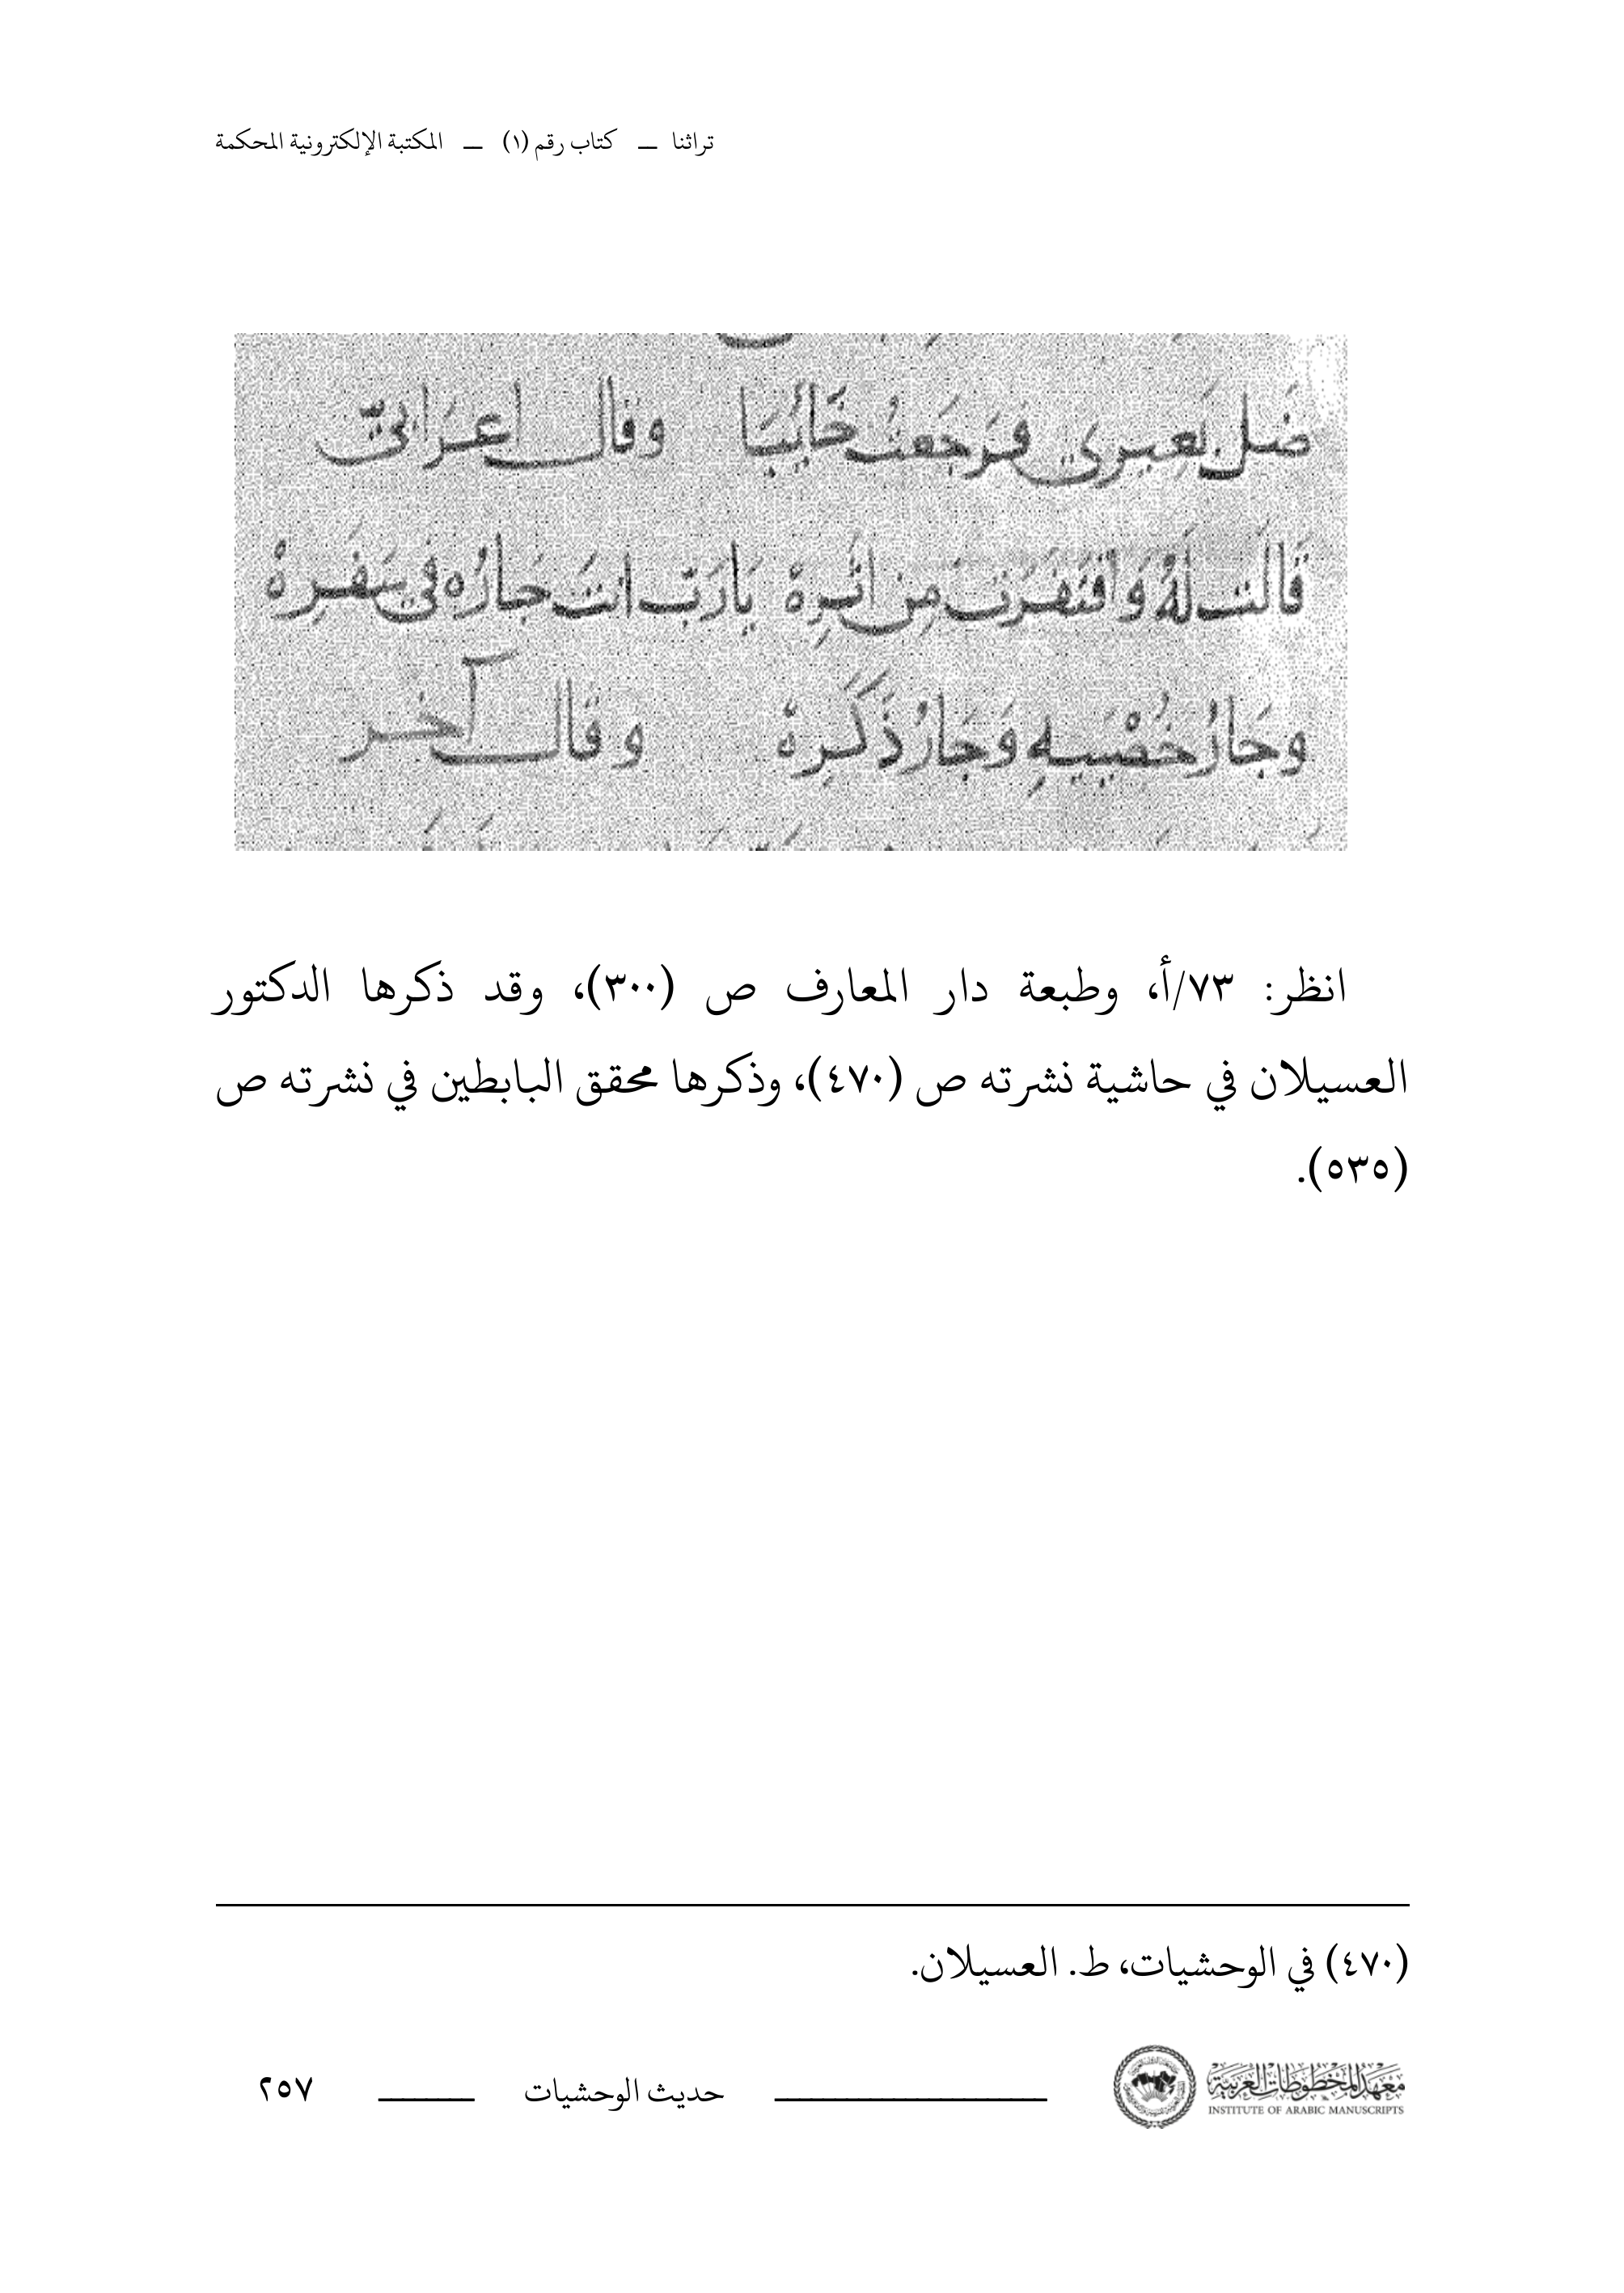 تراثنا — كتاب رقم (١) — المكتبة الإلكترونية المحكمة
ضل بَعيري فَرَجَعتُ خَائِبَا وقال اعرَابيّ
قَالَت لَهُ وَاقتَفَرَت مِن اثَرِهْ يَارَبّ انتَ جَارُه في سَفَرِهْ
وجَارُ خُصْيَيهِ وَجَارُ ذَكَرِهْ وقال آخر
انظر: ٧٣/أ، وطبعة دار المعارف ص (٣٠٠)، وقد ذكرها الدكتور
العسيلان في حاشية نشرته ص (٤٧٠)، وذكرها محقق البابطين في نشرته ص
(٥٣٥).
(٤٧٠) في الوحشيات، ط. العسيلان.
معهد المخطوطات العربية
INSTITUTE OF ARABIC MANUSCRIPTS
حديث الوحشيات
٢٥٧